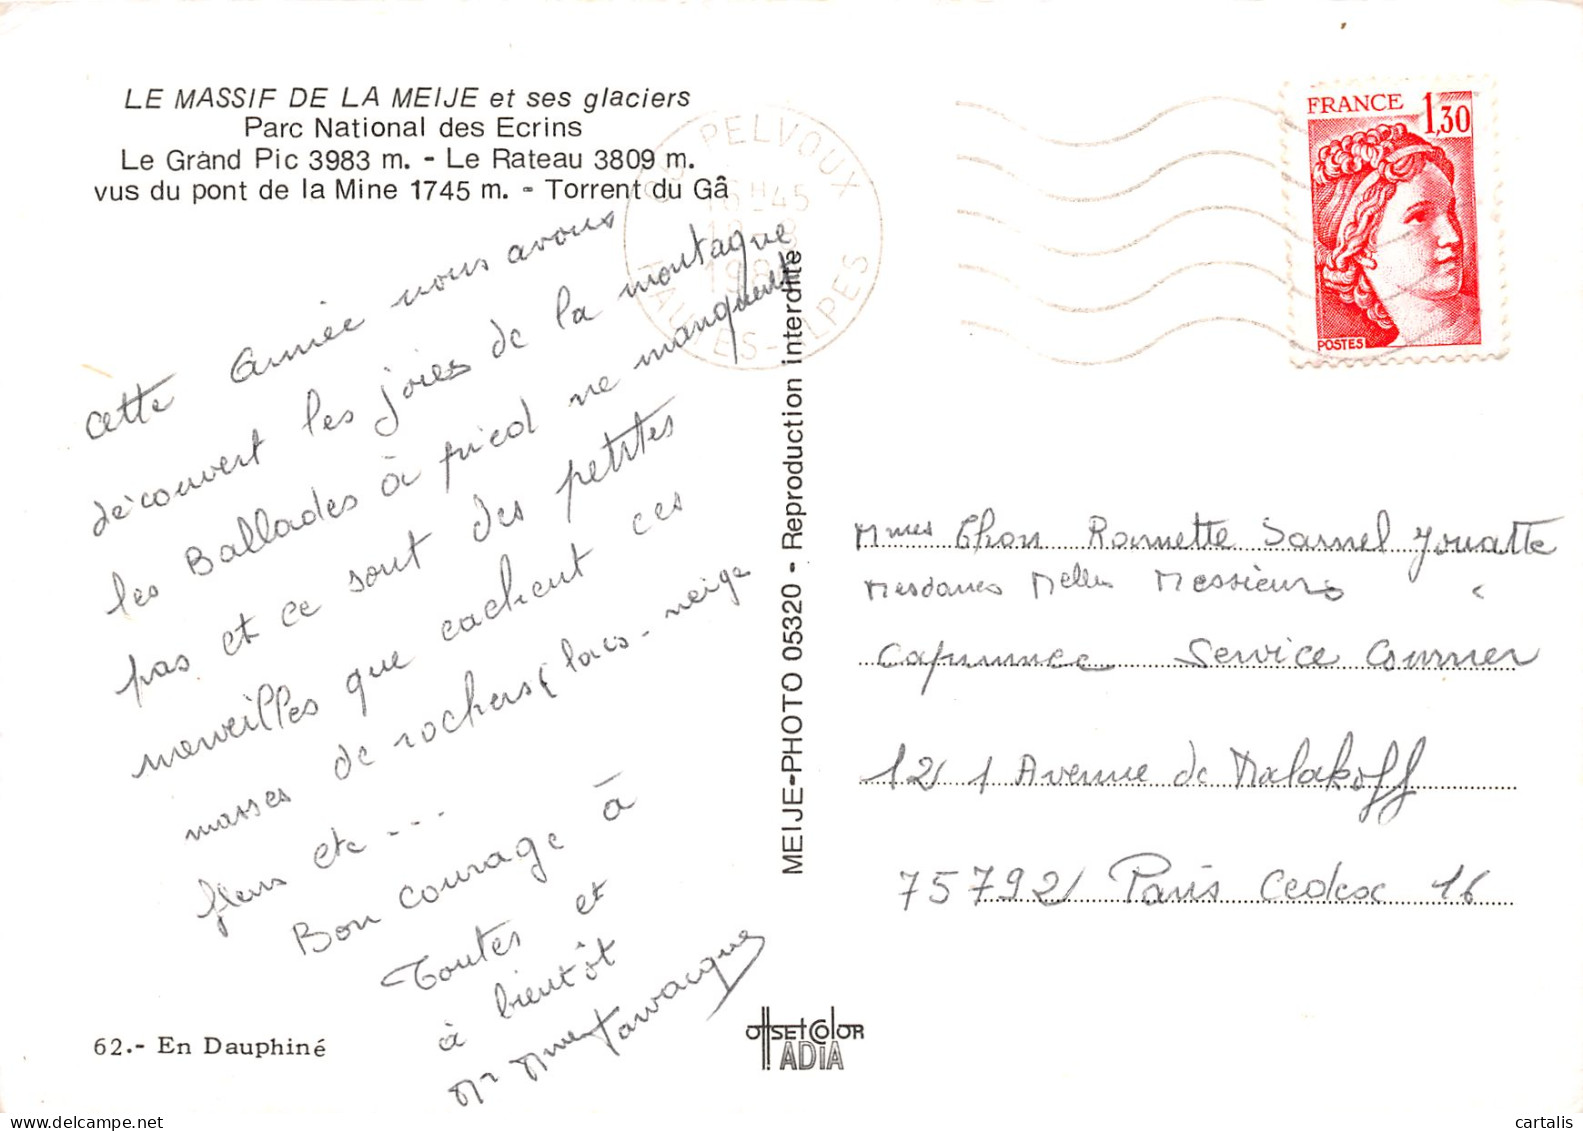 LE MASSIF DE LA MEIJE et ses glaciers
Parc National des Ecrins
Le Grand Pic 3983 m. - Le Rateau 3809 m.
vus du pont de la Mine 1745 m. - Torrent du Gâ
PELVOUX
16H45
HAUTES-ALPES
FRANCE 1,30
POSTES
cette année nous avons
découvert les joies de la montagne
les Ballades à pied ne manquent
pas et ce sont des petites
merveilles que cachent ces
masses de rochers, lacs - neige
fleurs etc ---
Bon courage à
Toutes et
à bientôt
Mr Mme
MEIJE-PHOTO 05320 - Reproduction interdite
Mmes Thon Ramette
Mesdames Melles Messieurs
Service Courrier
121 Avenue de Malakoff
75792 Paris Cedex 16
62.- En Dauphiné
OFFSET COLOR
ADIA
cartalis